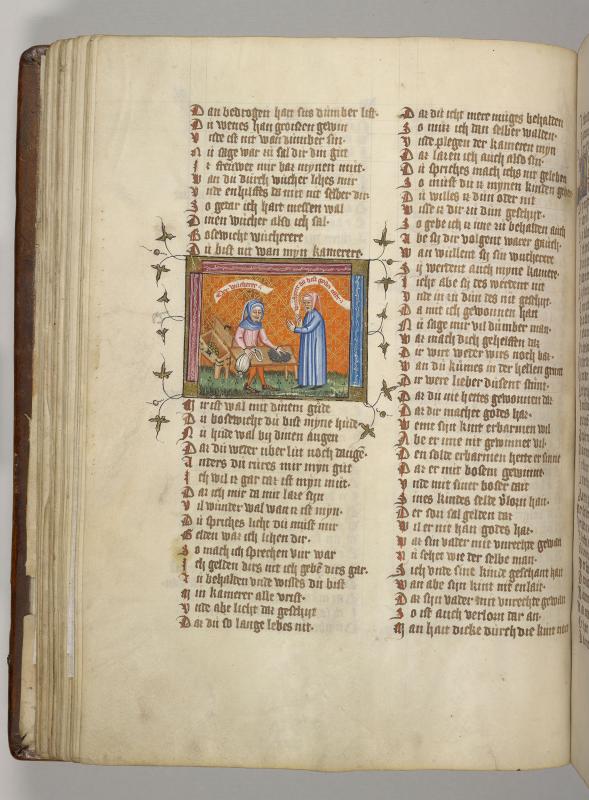 Dan bedrogen hart sus dumber list·
Du wenes han groissen gewin
Vnde ist nit wan dumber sin·
Nu sage war zu sal dir din gut
Ir steuwer mir baz mynen mut·
Wan du durch wucher lihes mir
Vnde enhilffes da mit nit selber dir·
So getar ich hart messen wal
Dinen wucher also ich sal·
Bosewicht wucherere
Du bist nit wan myn kamerere·
Der wucherer
Mir ist wal mit dinem gude
Du bosewicht du bist myne hude·
Nu hude wal by dinen augen
Daz du weder vber lut noch dauge͂·
Anders du rures mir myn gut
Ich wil iz gar daz ist myn mut·
Daz ich mir da mit laze syn
Vil wunder wal wan iz ist myn·
Du spriches licht du must mir
Gelden waz ich lihen dir·
So mach ich sprechen vur war
Ich gelden dirs nit ich gebe͂ dirs gar·
Zu behalden vnde wisses du bist
Min kamerer alle vrist·
Vnde abe licht daz geschyt
Daz du so lange lebes nit·
Daz du icht mere muges behalden
So muz ich dan selber walden·
Vnde plegen der kameren myn
Daz lazen ich auch also sin·
Du spriches mach ichs nit geleben
So must du iz mynen kinden geben
Du willes iz dun oder nit
Wisse iz dir zu dun geschyt·
So gebe ich iz ine zu behalden auch
Abe sy dir volgent
Wan willent sy sin wucherere
Sy werdent auch myne kamere·
Licht abe sy des werdent nit
Vnde in zu dun des nit geschyt·
Da mit ich gewonnen han
Nu sage mir vil dumber man·
Waz mach dich gehelffen daz
Dir wirt weder wirs noch baz·
Wan du kumes in der hellen grunt
Dir were lieber dusent stunt·
Daz du nit hettes gewonnen daz
Daz dir machet godes haz·
Weme sin kint erbarmen wil
Abe er ime nit gewinnet vil·
Den solde erbarmen herte er sinne
Daz er mit bosem gewinne·
Vnde mit siner boser tait
Sines kindes selde v͛lorn hait·
Der son sal gelden daz
Wil er nit han godes haz·
Waz sin vader mit vnrechte gewan
Nu sehet wie der selbe man·
Sich vnde sine kinde geschant hait
Wan abe syn kint nit enlait·
Daz syn vader mit vnrechte gewan
So ist auch verlorn dar an·
Man hait dicke durch die kint